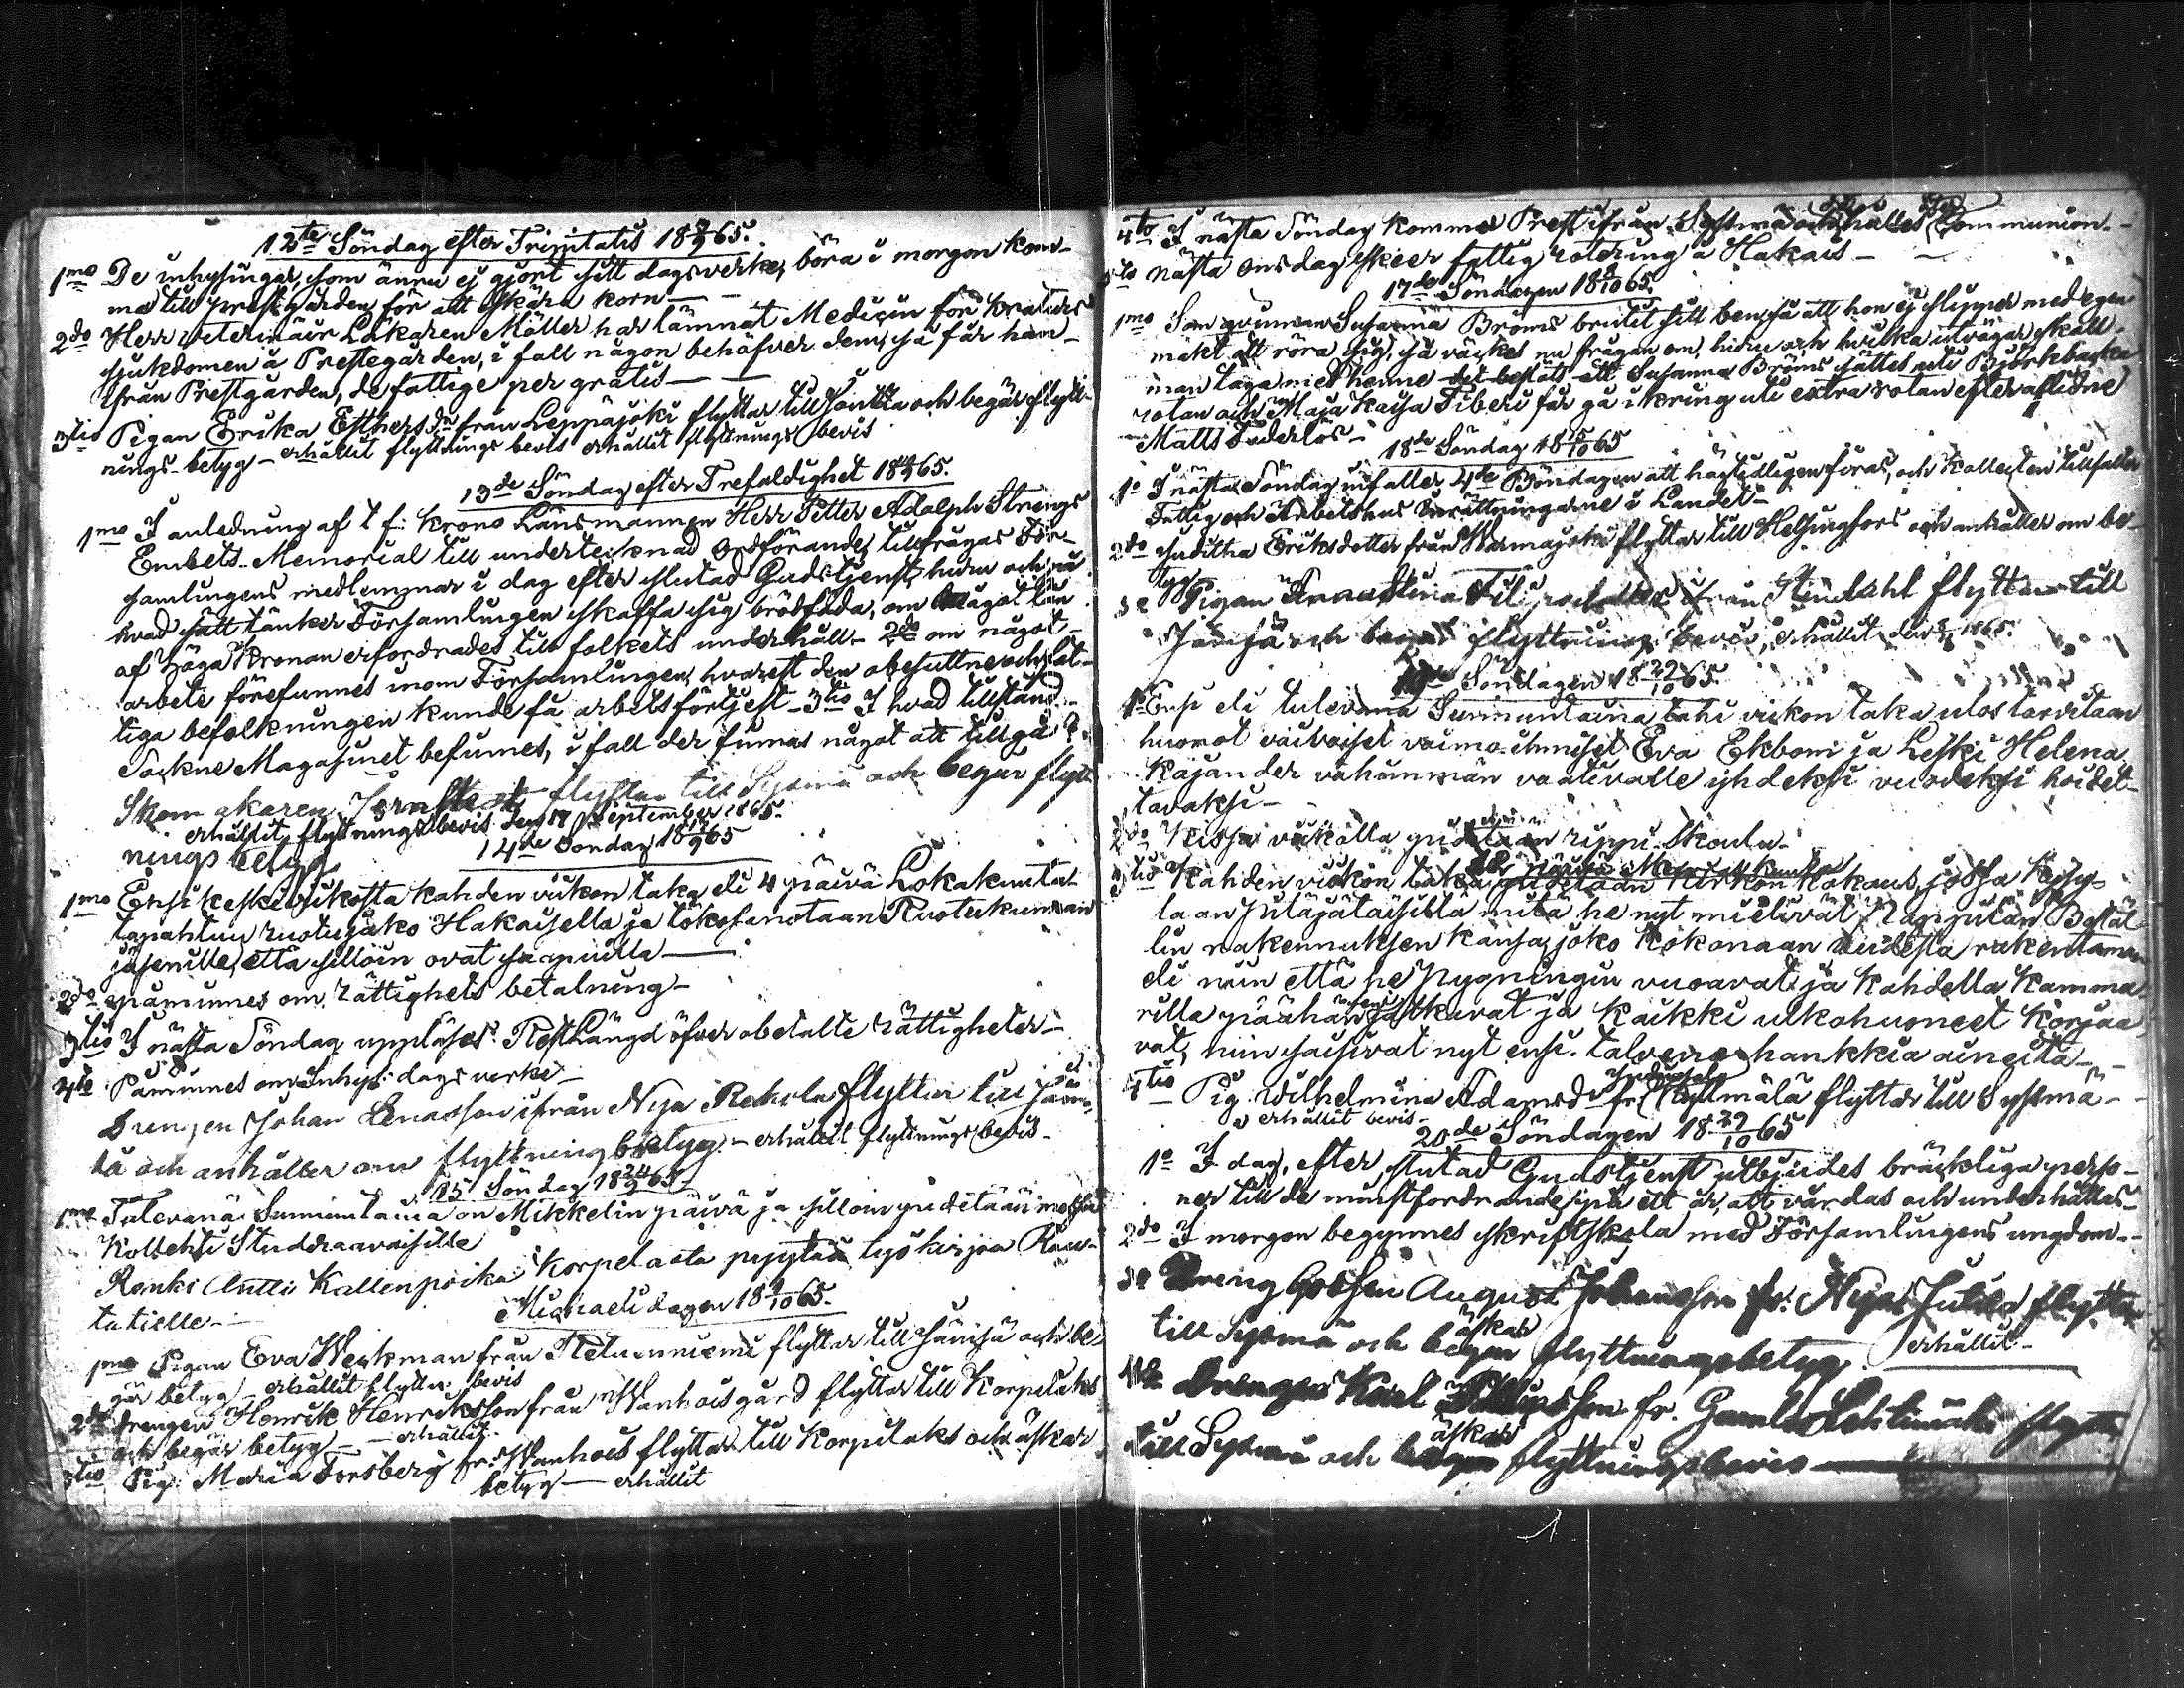 12te Söndag efter Trinitatis 18 3/9 65.
1mo De inhysingar, som ännu ej gjort sitt dagsverke, böra i morgon kom-
ma till prestgården för att skära korn —
2do Herr Veterinäir Läkaren Möller har lämnat Medicin för kreaturs
sjukdomen å Prestegården, i fall någon behöfver dem, så får han
från Prestgården, de fattige per gratis —
3tio Pigan Erika Esthersdr från Leppäjoki flyttar till och begär flytt-
nings-betyg — erhållit flyttnings bevis erhållit flyttnings bevis
13de Söndag efter Trefaldighet 18 10/9 65.
1mo I anledning af t f: Krono Länsmannen Herr Petter Adolph Strengs
Embets-Memorial till undertecknad Ordförande, tillfrågas För-
samlingens medlemmar i dag efter slutad Gudstjenst, huru och på
hvad sätt tänker Församlingen skaffa sig brödföda, om något lån
af Höga Kronan erfordrades till folkets underhåll — 2do om något
arbete förefunnes inom Församlingen, hvarest den obesuttne och fat-
tiga befolkningen kunde få arbetsförtjenst — 3tio I hvad tillstånd
Sockne Magasinet befunnes, i fall der finnas något att tillgå?
Skomakaren flyttar till Sysmä och begär flytt-
erhållit flyttnings bevis den 17 September 1865.
nings betyg
14de Söndag 18 17/9 65
1mo Ensi keskiviikosta kahden viikon taka eli 4 päivä Lokakuuta
tapahtuu ruotujako Hakaisella ja tökösanotaan Ruotukunnan
jäsenille, että silloin ovat saapuilla —
2do påminnes om rättighets betalning —
3tio I nästa Söndag uppläses Rest Längd öfver obetalte rättigheter —
4to Påminnes om Inhys: dagsverke —
Drengen Johan Enasson ifrån Nya Rekola flyttar till Jäm-
sä och anhåller om flyttningbetyg — erhållit flyttnings bevis —
15 Söndag 18 24/9 65
1mo Tulevana Sunnuntaina on Mikkelin päivä ja silloin pidetään messu
Kollehti Studdraavaisille
Renki Antti Kallenpoika Korpelasta pyytää työkirjaa Rau-
tatielle —
Michaeli dagen 18 1/10 65.
1mo Pigan Eva Weckman från Retuenniemi flyttar till Jämsä och be-
gär betyg — erhållit flyttn. bevis
2do drengen Henrik Henriksson från Wanhais gård flyttar till Korpilaks
och begär betyg — erhållit —
3tio Pig. Maria Forsberg fr: Wanhais flyttar till Korpilaks och äskar
betyg — erhållit
4to I nästa Söndag kommer Prest ifrån Sysmä och hålles Communion —
5to nästa onsdag skeer fattig rotering å Hakais —
17de Söndagen 18 8/10 65.
1mo Som Susanna Bröms brutit sitt ben, så att hon ej slipper med egen
makt att röra sig, så väckes nu frågan om, huru och hvilka utvägar skall
man taga med henne det beslöts att Susanna Bröms sättes uti Björkbacka
rotan och Maja Kaisa Tiberi får gå ikring uti extra rotan efter aflidne
Matts Faderlös —
18de Söndag 18 15/10 65
1o I nästa Söndag infaller 4de Böndagen att högtidligen firas, och Kollecten tillfaller
Fattig och Arbetshus Inrättningarne i Landet —
2do Juditha Eriksdotter från Warmajoki flyttar till Helsingfors och anhåller om be-
tyg
3o Pigan Anna Stina ifrån Rindahl flyttar till
Jämsä och begär flyttnings bevis, erhållit den 1865.
19de Söndagen 18 22/10 65.
1o Ensi eli tulevana Sunnuntaina tahi viikon taka ulos tarvitaan
huonot vaivaiset vaimo-ihmiset Eva Ekboni ja Leski Helena
Kajander vähimmän vaativalle yhdeksi vuodeksi hoidet-
tavaksi —
2do Kissa viikolla pidetään rippi-Skoulu —
3tio Kahden viikon taka pidetään Kirkon Kokous, jossa kysy-
taan Pitäjäläisiltä mitä he nyt mielivät Pappilan Bostäl-
lin rakennuksen kansa, joko Kokonaan uudesta rakentaman
eli niin että he Pygningin vuoravat ja Kahdella Kamma-
rilla päähän jatkavat ja Kaikki ulkohuoneet korjaa-
vat, niin saisivat nyt ensi talvena hankkia aineita —
4tio Pig. Wilhelmina Adamsdr fr. Kyllmälä flyttar till Sysmä —
erhållit bevis —
20de Söndagen 18 29/10 65
1o I dag, efter slutad Gudstjenst utbjudes bräckliga perso-
ner till de minstfordrande, på ett år, att vårdas och underhållas —
2do I morgon begynnes skriftskola med Församlingens ungdom —
3o Dreng Gossen August Johansson fr. Nya Jutila flyttar
till Sysmä och begär äskar flyttningsbetyg erhållit —
4to Drengen Karl Philipsson fr. Gamla Lahtimäki flyttar
till Sysmä och begär äskar flyttningsbevis —